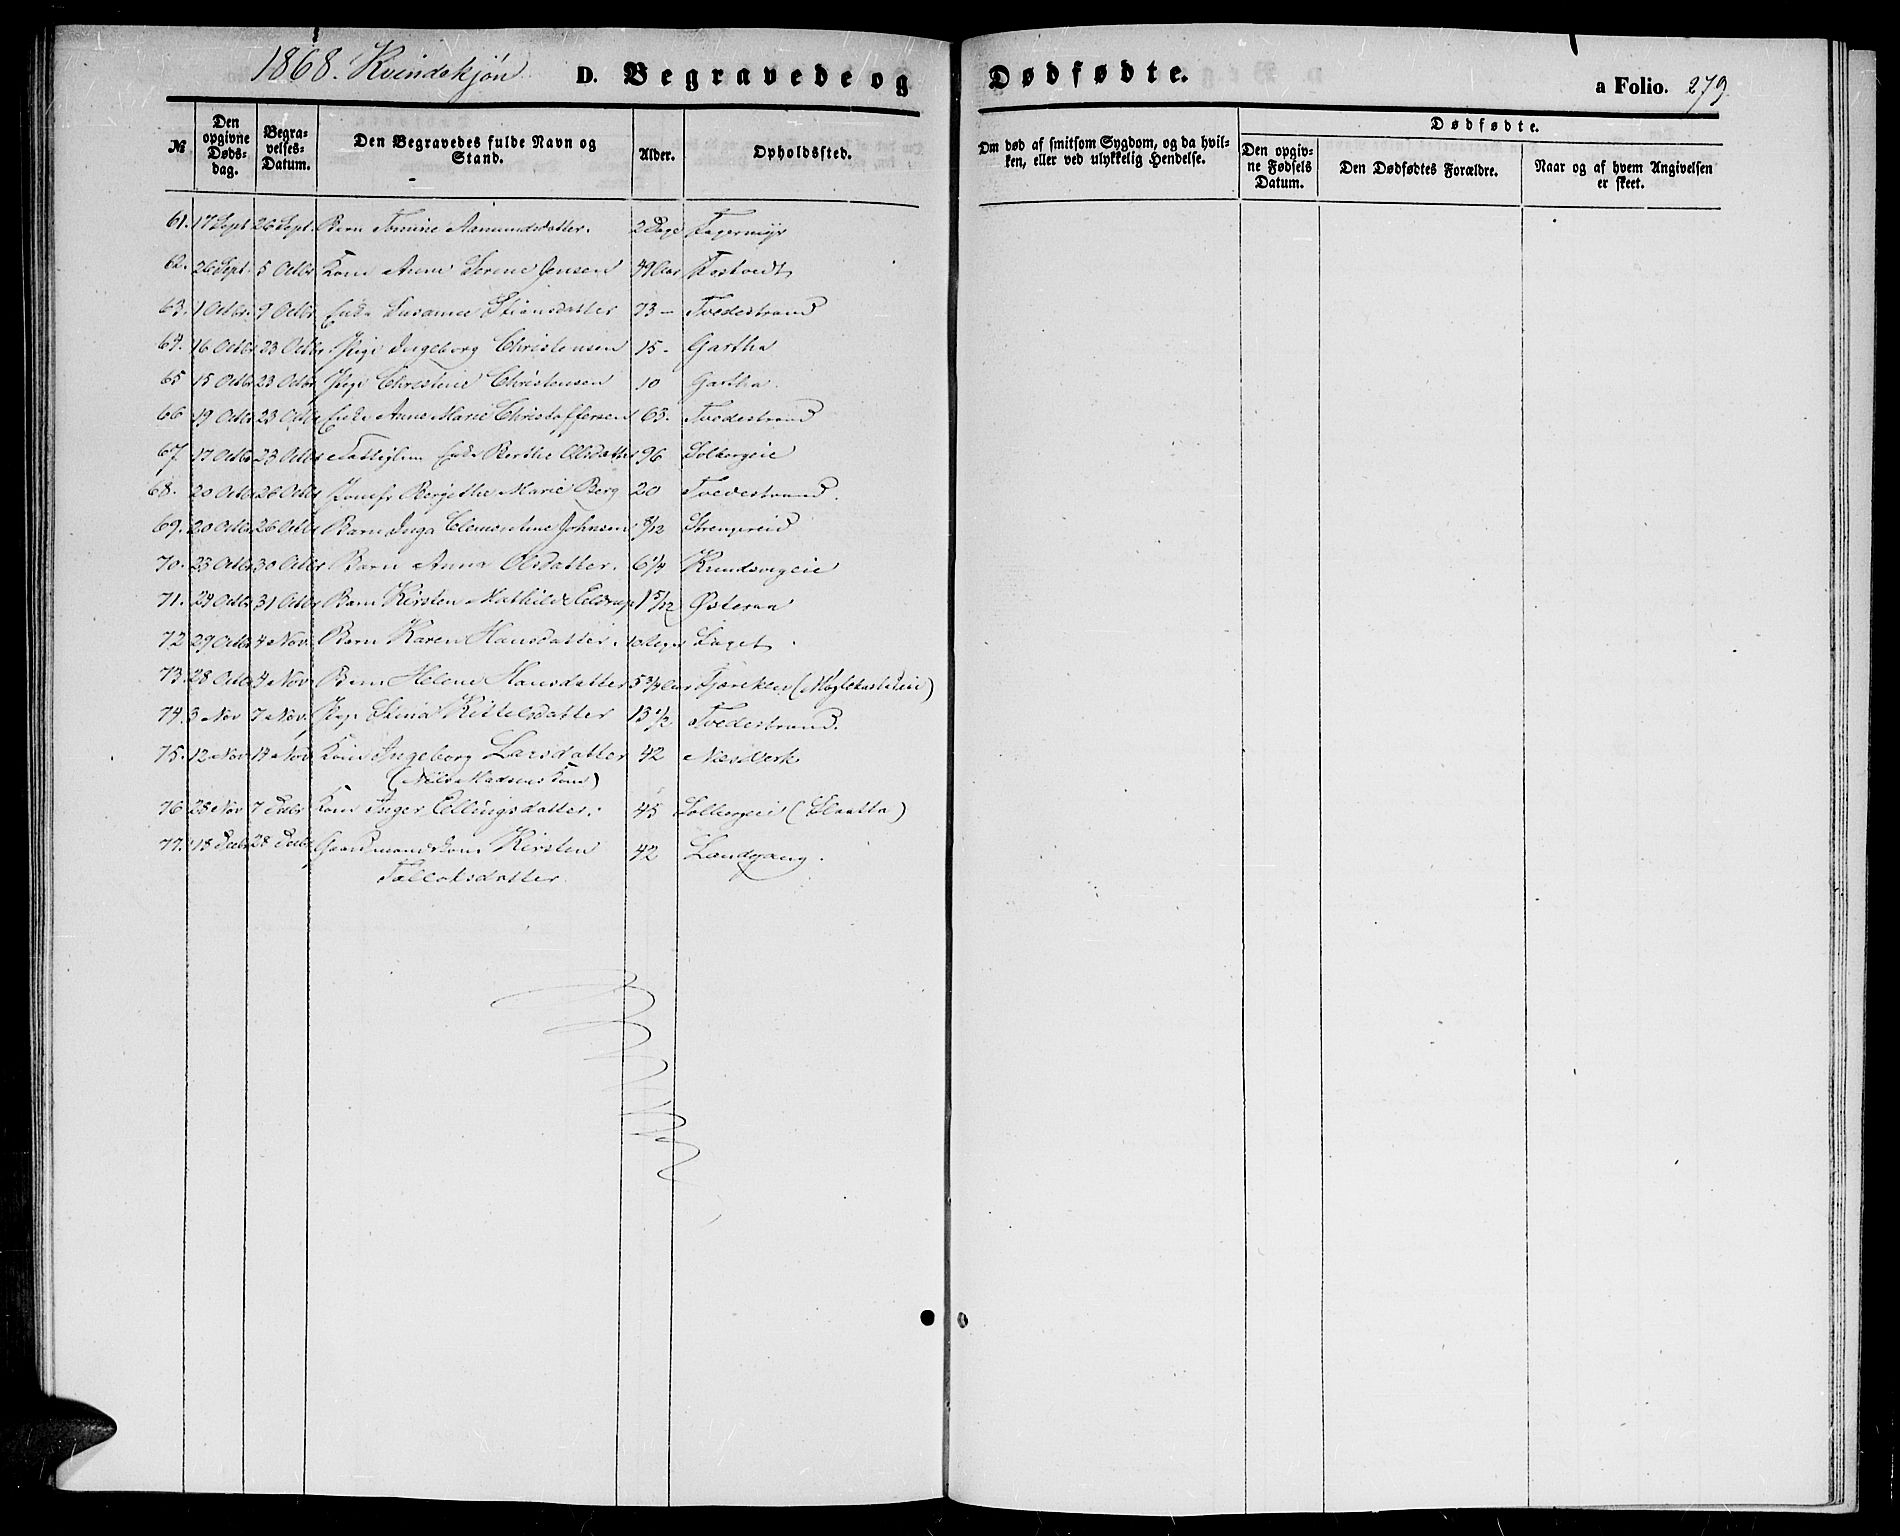 1868. Kvindekjøn D. Begravede og Dødfødte. a Folio. 279.
№ Den opgivne Dødsdag. Begravelses-Datum. Den Begravedes fulde Navn og Stand. Alder. Opholdssted. Om død af smitsom Sygdom, og da hvilken, eller ved ulykkelig Hendelse. Dødfødte.
Den opgivne Fødsels Datum. Den Dødfødtes Forældre. Naar og af hvem Angivelsen er skeet.
61. 17 Sept 26 Sept. Barn Tomine Aamundsdatter. 2 Dage Fagermyr
62. 26 Sept. 5 Octbr Kone Anne Serine Jensen 49 Aar Fostvedt
63. 1 Octbr. 9 Octbr Enke Susanne Stiansdatter 73 – Tvedestrand
64. 16 Octbr 23 Octbr Pige Ingeborg Christensen 15 - Gartha
65 15 Octbr 23 Octbr Pige Christine Christensen 10 Gartha.
66 19 Octbr 23 Octbr Enke Anne Marie Christoffersen 63. Tvedestrand
67. 17 Octbr 23 Octbr Fattiglem Enke Berthe Olsdatter 96 Solbergeie
68. 20 Octbr 26 Octbr Jomfr Bergithe Marie Berg 20 Tvedestrand.
69. 20 Octbr 26 Octbr Barn Inga Clementine Johnsen 8/12 Strengereid
70. 23 Octbr 30 Octbr Barn Anna Olsdatter. 6 1/4 Kundsvigeie
71. 24 Octbr 31 Octbr Barn Kirsten Mathilde 1 5/12 Østeraa
72 29 Octbr 4 Nov. Barn Karen Hansdatter. 10 Dage Laget.
73. 28 Octbr 4 Nov Barn Helene Hansdatter 5 3/4 Aar Fjæreklev
74. 3 Nov 7 Nov. Pige Stina Kittelsdatter 13 1/2 Tvedestrand.
75. 12 Nov 14 Nov Kone Ingeborg Larsdatter 42 Næs Verk
(Niels Madsens Kone)
76 28 Nov 7 Decbr Kone Inger Ellingsdatter. 45 Solbergeie (Slaatta)
77. 18 Decbr 28 Decbr Gaardmandskone Kirsten 42 Landgang.
Tallaksdatter.